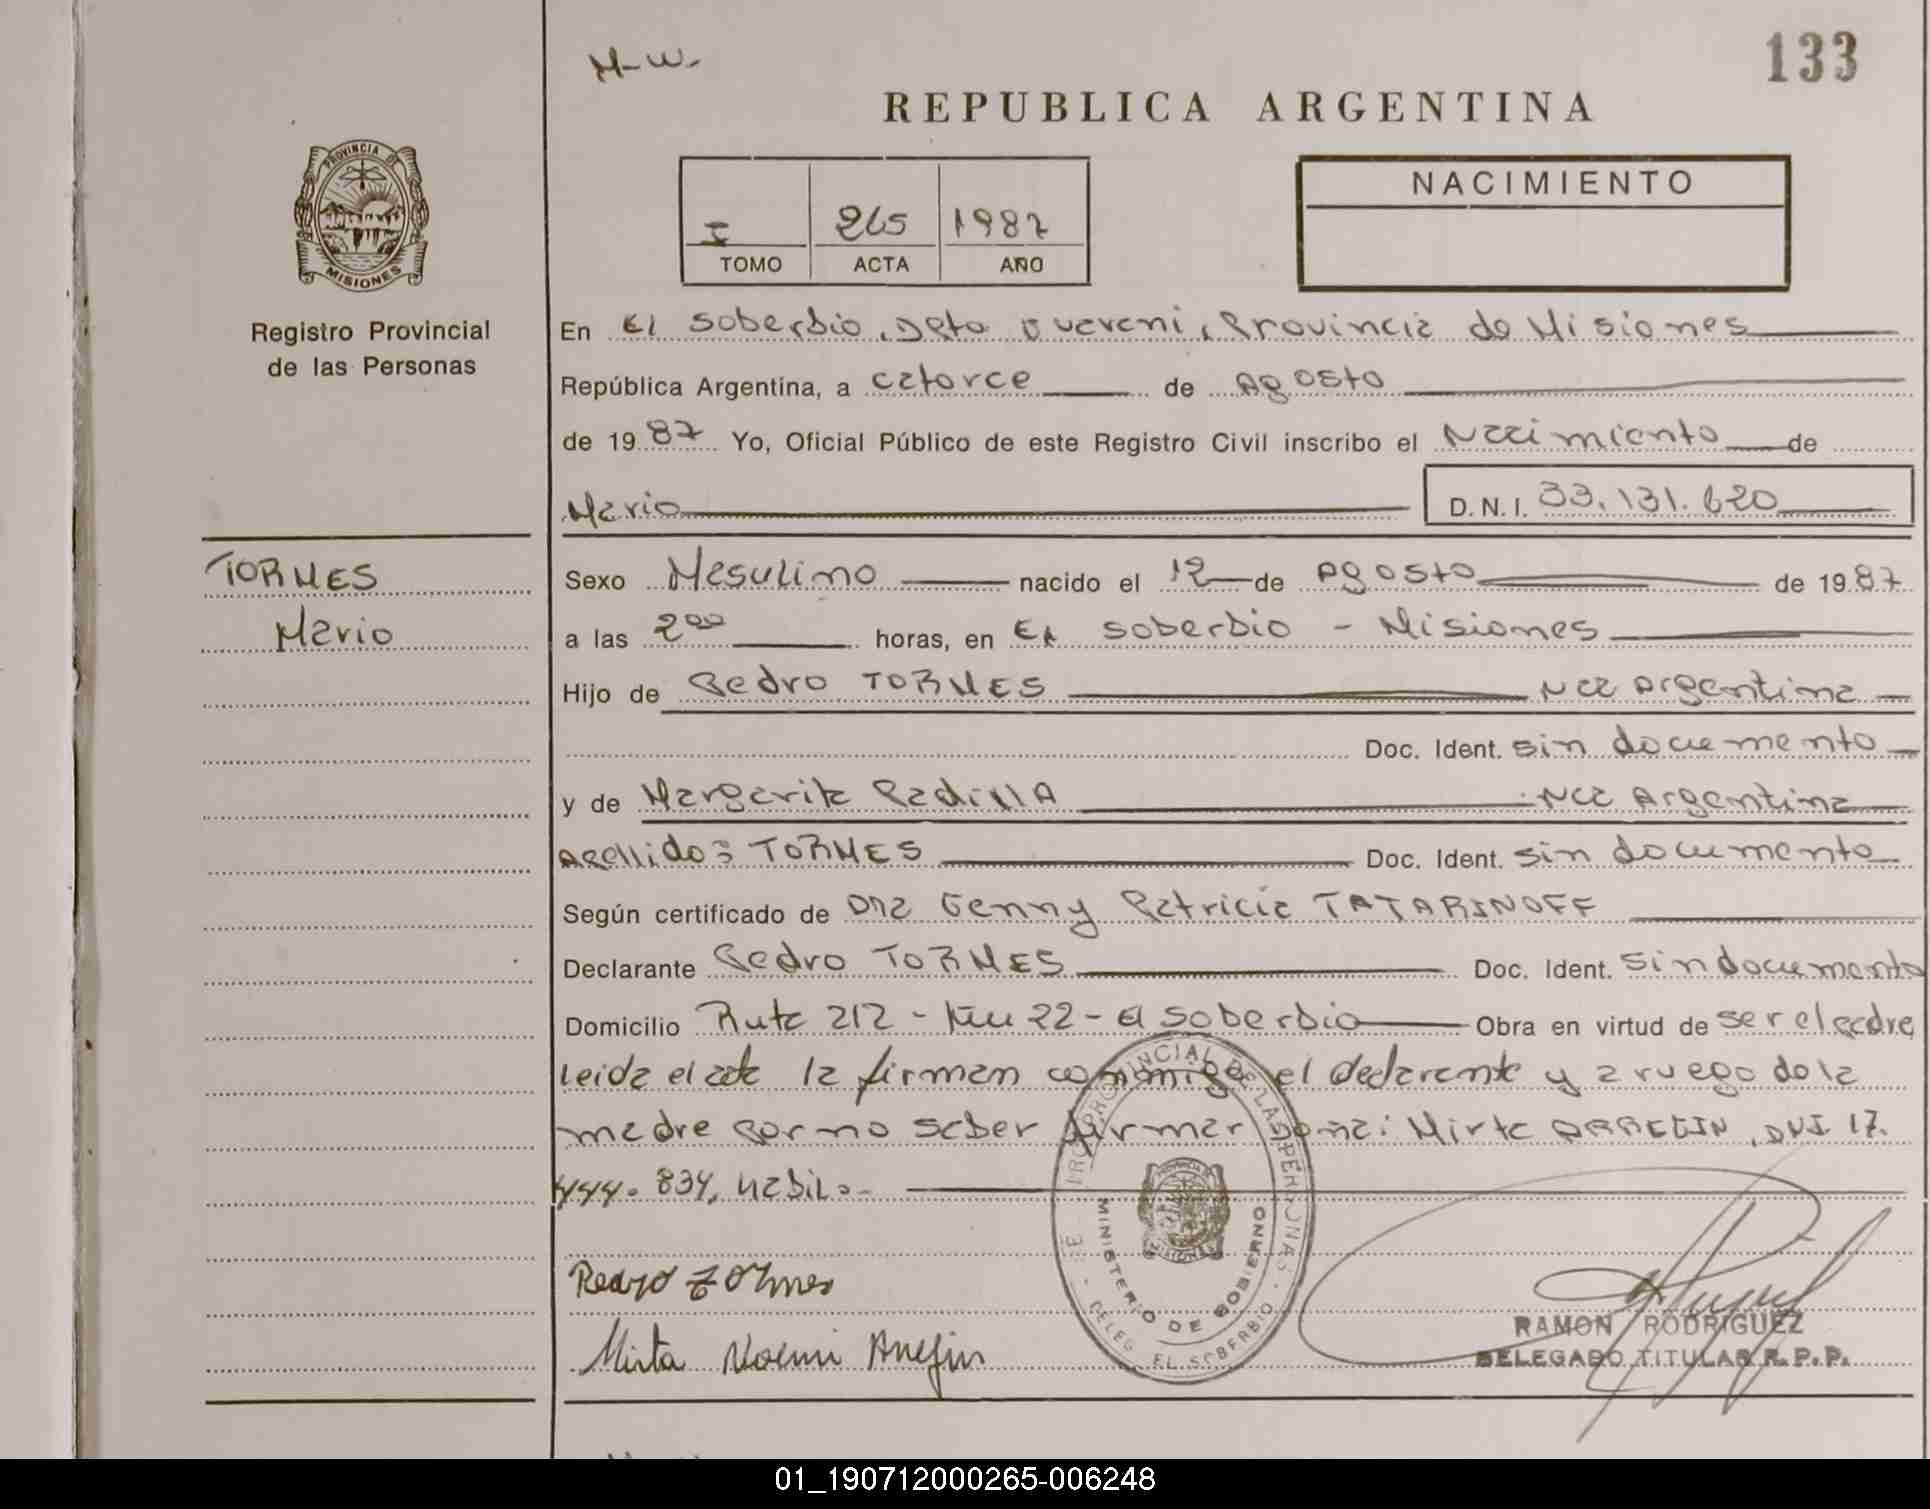 M-W-
133
REPUBLICA ARGENTINA
PROVINCIA DE
MISIONES
I 265 1987
TOMO ACTA AÑO
NACIMIENTO
Registro Provincial
de las Personas
En El Soberbio, Dpto Guarani, Provincia de Misiones
República Argentina, a catorce de Agosto
de 1987 Yo, Oficial Público de este Registro Civil inscribo el Nacimiento de
Mario
D.N.I. 33.131.620
TORMES
Mario
Sexo Masculino nacido el 12 de Agosto de 1987
a las 2 00 horas, en El Soberbio - Misiones
Hijo de Pedro TORMES Nac Argentina
Doc. Ident. sin documento
y de Margarita Padilla Nac Argentina
Apellido: TORMES Doc. Ident. sin documento
Según certificado de Dra Genny Patricia TATARINOFF
Declarante Pedro TORMES Doc. Ident. sin documento
Domicilio Ruta 212 - Km 22 - El Soberbio Obra en virtud de ser el padre
leida el acta la firman conmigo el declarante y a ruego de la
madre por no saber firmar doña: Mirta ARREGIN, DNI 17.
444.834, habil.-
Pedro Tormes
Mirta Noemi Arregin
REG. PROVINCIAL DE LAS PERSONAS
MINISTERIO DE GOBIERNO
DELEG. EL SOBERBIO
RAMON RODRIGUEZ
DELEGADO TITULAR R.P.P.
01_190712000265-006248